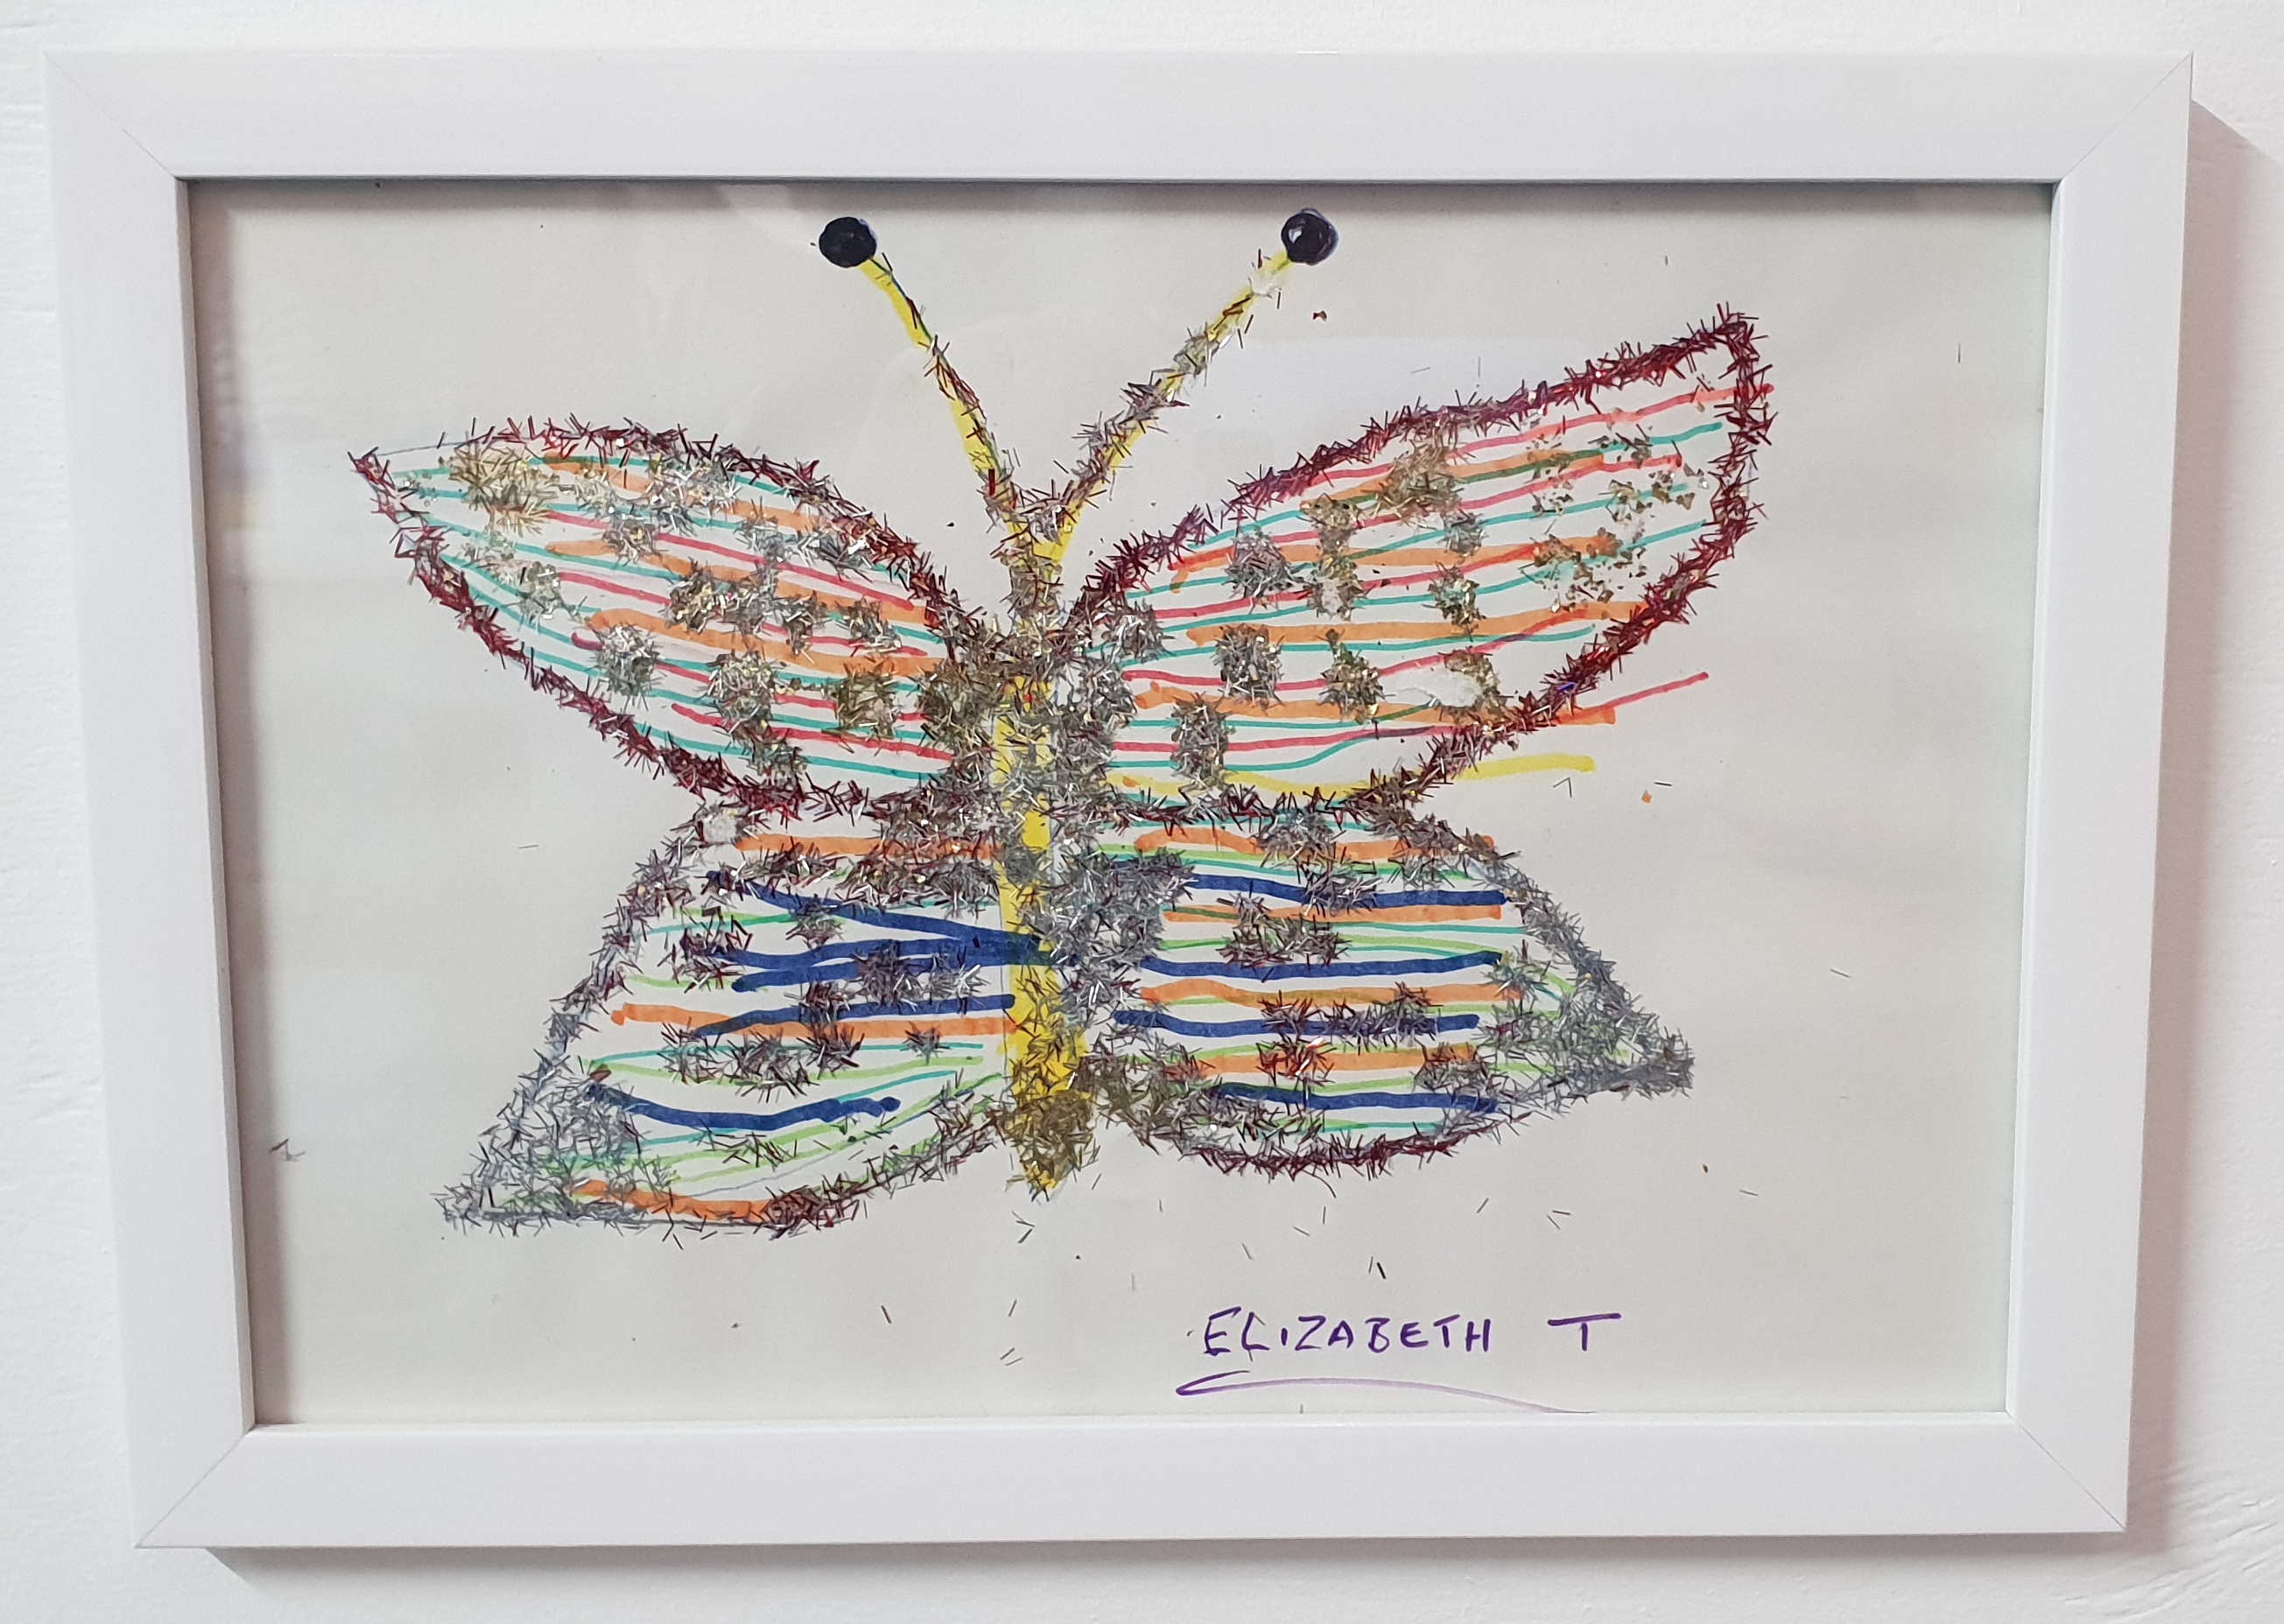 ELIZABETH T